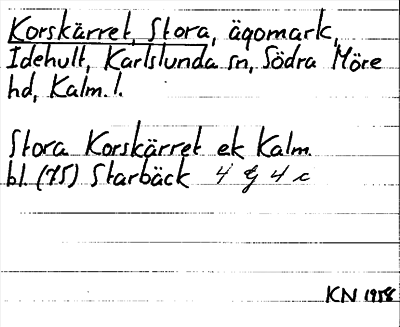 Korskärret, Stora, ägomark,
Idehult, Karlslunda sn, Södra Möre
hd, Kalm. l.
Stora Korskärret ek Kalm.
bl. (75) Starbäck 4 g 4 c
KN 1958